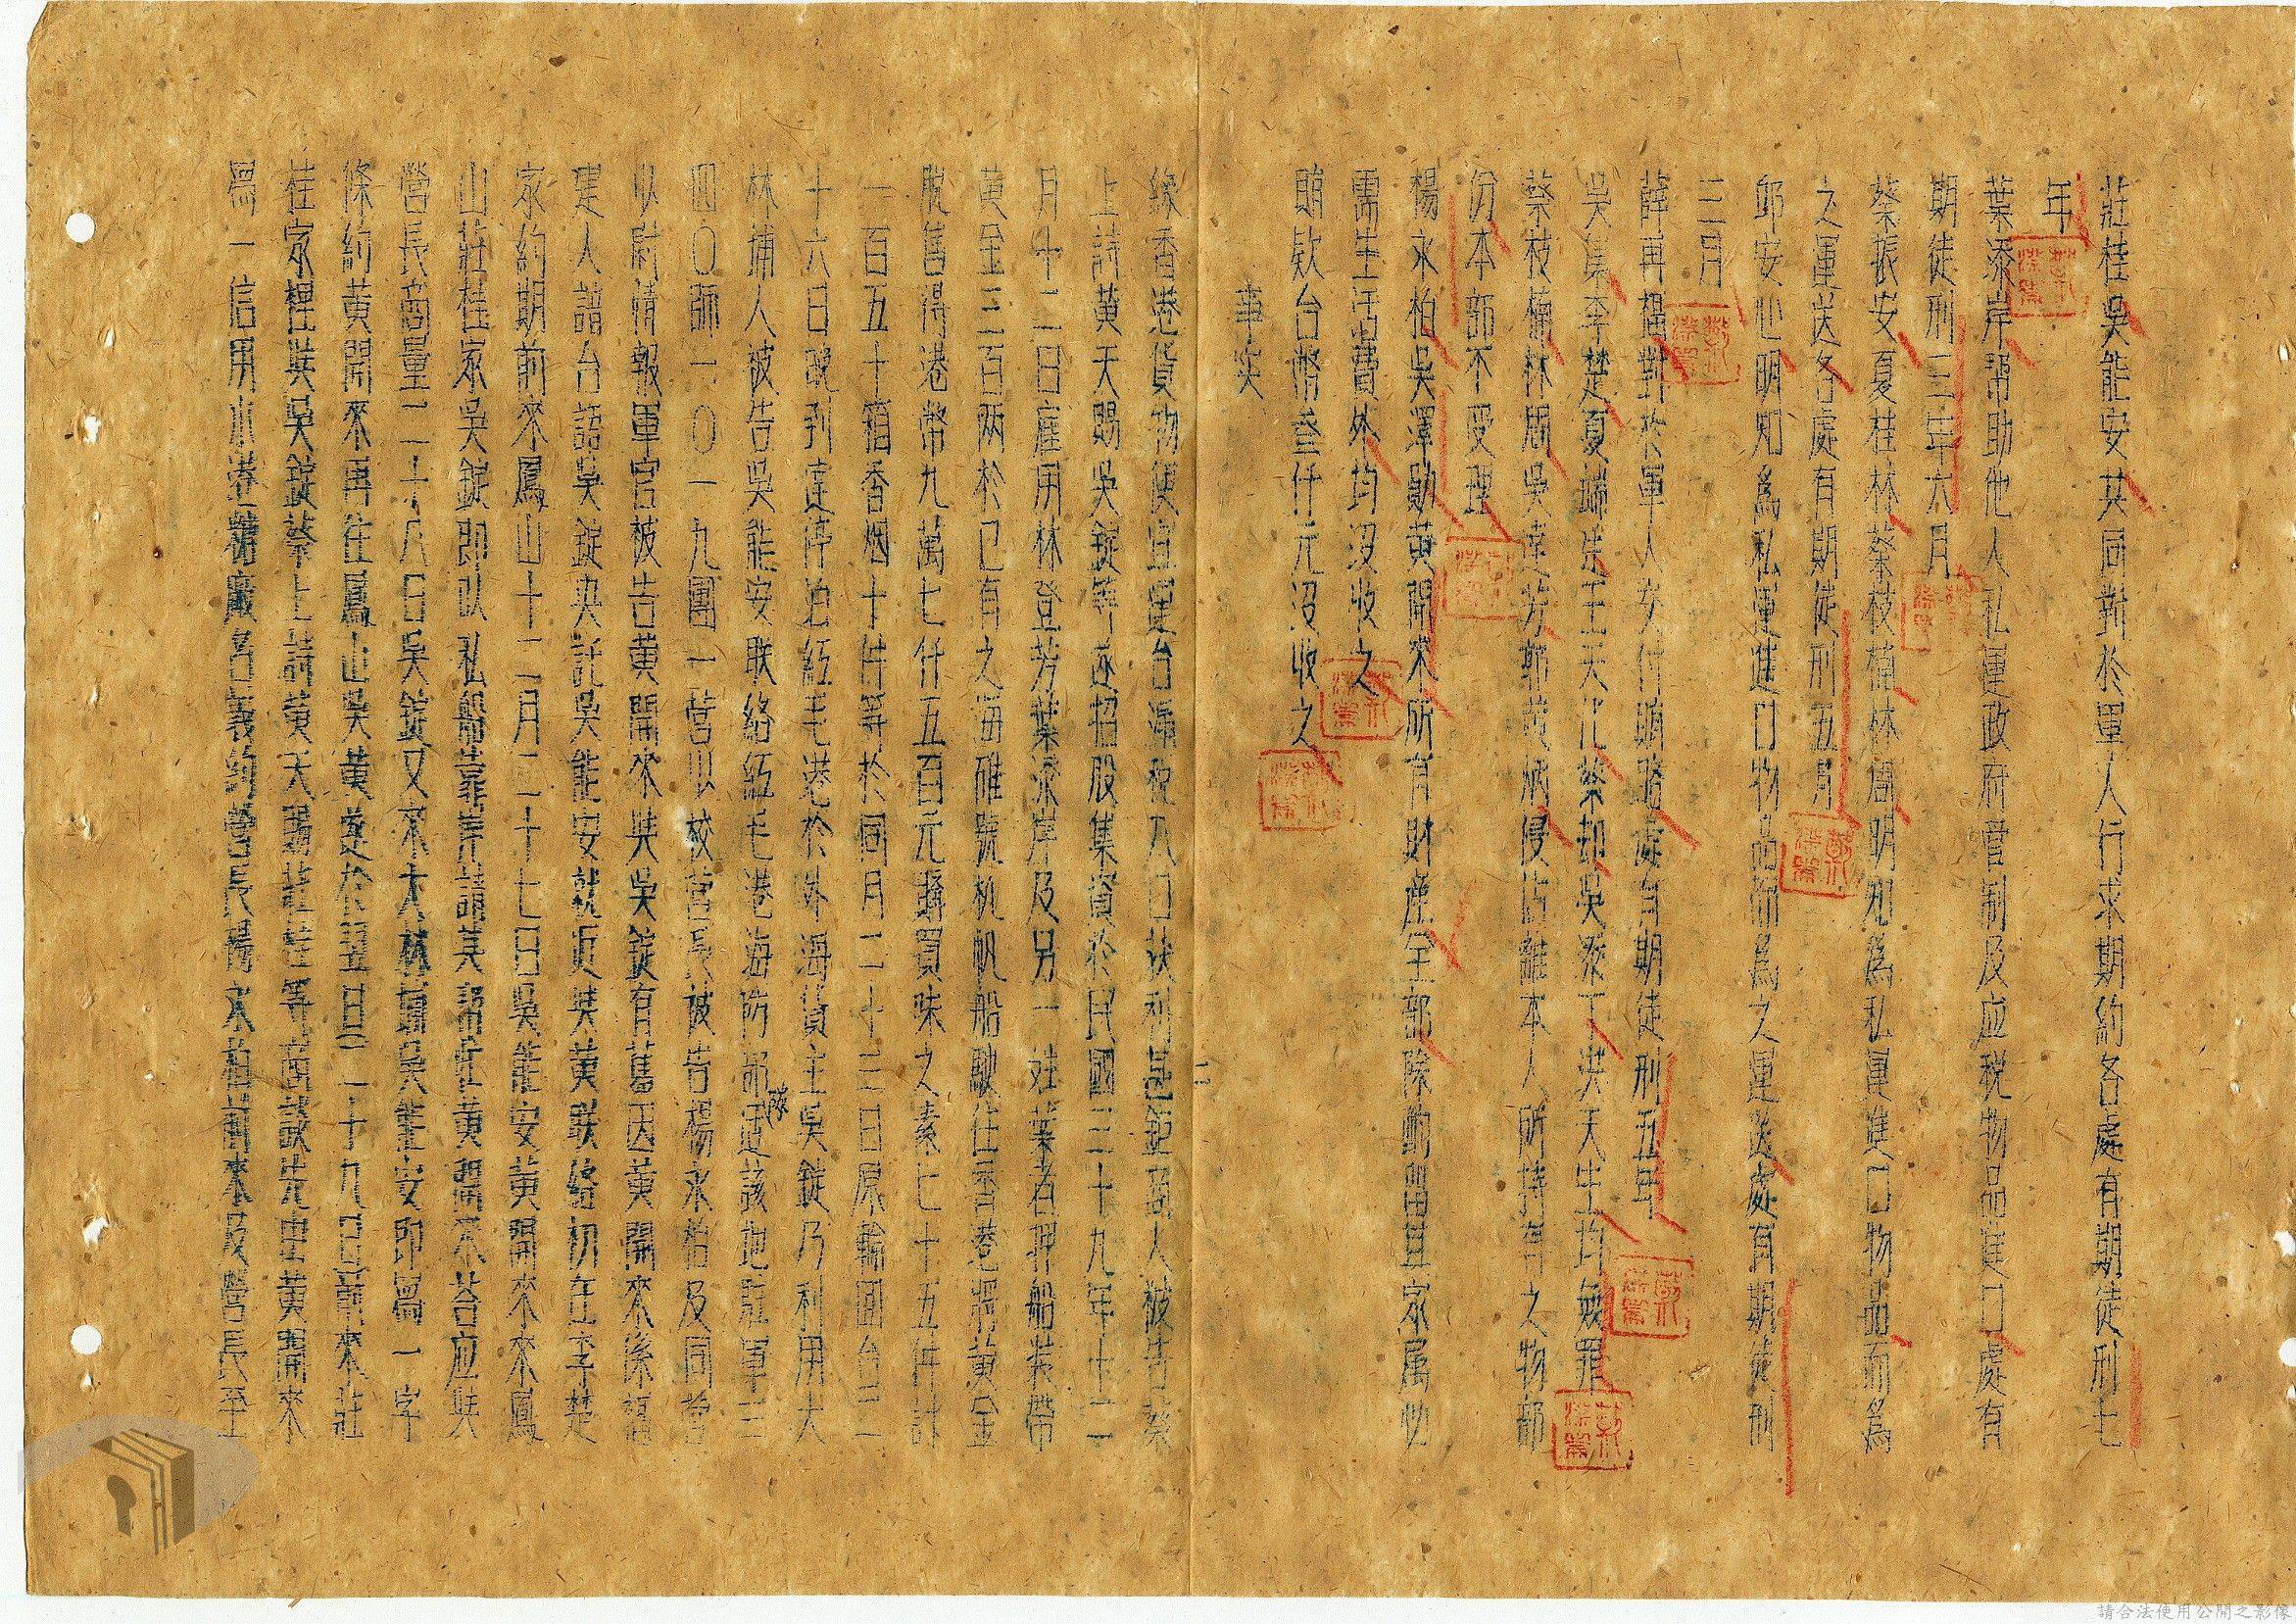 莊桂吳能安共同對於軍人行求期約各處有期徒刑七
年
葉添岸幫助他人私運政府管制及应稅物品進口處有
期徒刑三年六月
蔡振安夏桂林蔡枝楠林周明知為私運進口物品而為
之運送各處有期徒刑五月
邱安心明知為私運進口物品而為之運送處有期徒刑
三月
薛再楊對於軍人交付賄賂處有期徒刑五年
吳集李楚夏端法王天化蔡却吳添丁洪天生均無罪
蔡枝楠林周吳達芳郭黃炳侵佔離本人所持有之物部
份本部不受理
楊永柏吳澤勛黃開來所有財產全部除酌留其家屬必
需生活費外均沒收之
賄欵台幣叁仟元沒收之
事实
緣香港貨物便宜運台漏稅入口获利甚鉅商人被告蔡
上詩黃天賜吳錠等遂招股集資於民國三十九年十二
月十二日雇用林登芳葉添岸及另一姓葉者押船裝帶
黃金三百兩於已有之海雄號机帆船駛往香港將黃金
脫售得港幣九萬七仟五百元購買味之素七十五件計
一百五十箱香烟十件等於同月二十三日原輪回台二
十六日晚到達停泊紅毛港於外海貨主吳錠乃利用大
林埔人被告吳能安联絡紅毛港海防部隊適該地駐軍三
四〇師一〇一九團一營少校營長被告楊永柏及同營
少尉情報軍官被告黃開來與吳錠有舊因黃開來係福
建人諳台語吳錠央託吳能安就近與黃联絡初在李楚
家約期前來鳳山十二月二十七日吳能安黃開來來鳳
山莊桂家吳錠即以私船靠岸請其幫忙黃開來答应與
營長商量二十八日吳錠又來大林埔吳能安即寫一字
條約黃開來再往鳳山吳黃遂於翌日(二十九日)前來莊
桂家裡與吳錠蔡上詩黃天賜莊桂等商談先由黃開來
寫一信用小港糖廠名義約營長楊永柏前來及營長至
二
請合法使用公開之影像